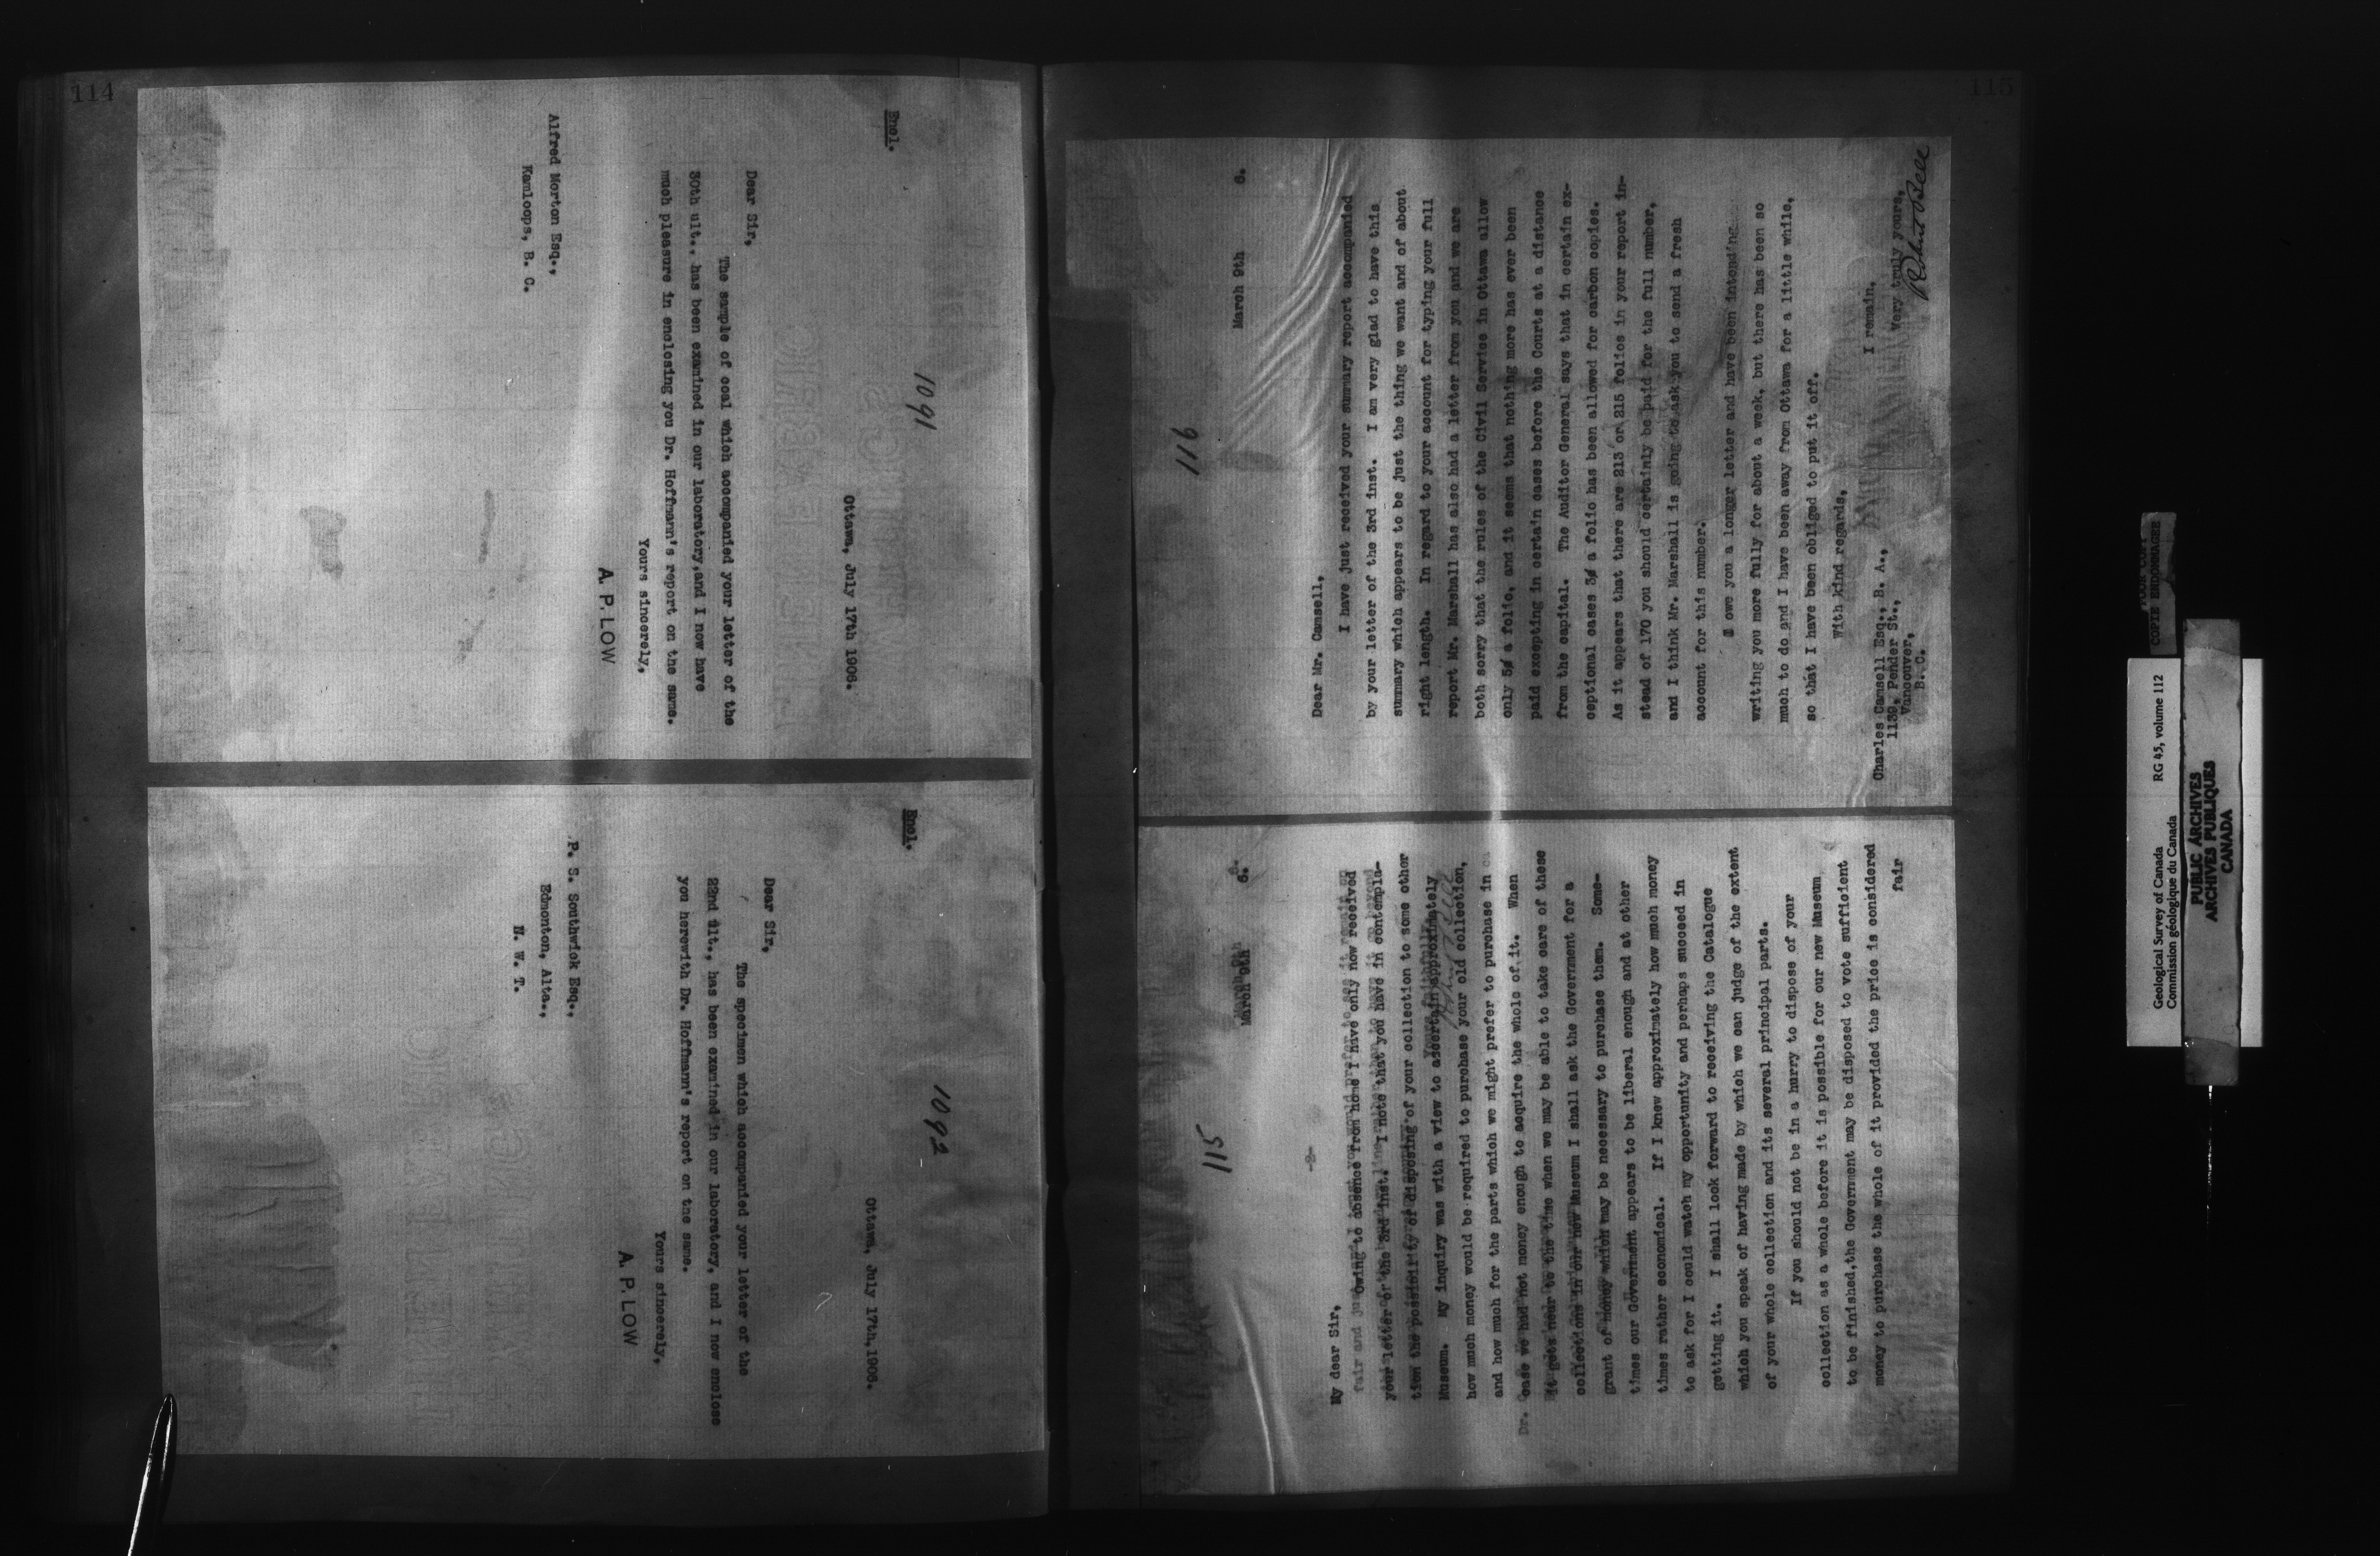 114
1091
Encl.
Ottawa, July 17th 1906.
Dear Sir,
The sample of coal which accompanied your letter of the
30th ult., has been examined in our laboratory,and I now have
much pleasure in enclosing you Dr. Hoffmann's report on the same.
Yours sincerely,
A. P. LOW
Alfred Morton Esq.,
Kamloops, B. C.
1092
Encl.
Ottawa, July 17th,1906.
Dear Sir,
The specimen which accompanied your letter of the
22nd ult., has been examined in our laboratory, and I now enclose
you herewith Dr. Hoffmann's report on the same.
Yours sincerely,
A. P. LOW
P. S. Southwick Esq.,
Edmonton, Alta.,
N. W. T.
115
115
March 9th 6.
-2-
My dear Sir,
Owing to absence from home I have only now received
your letter of the 3rd inst. I note that you have in contempla-
tion the possibility of disposing of your collection to some other
Museum. My inquiry was with a view to ascertain approximately
how much money would be required to purchase your old collection,
and how much for the parts which we might prefer to purchase in
case we had not money enough to acquire the whole of it. When
it gets near to the time when we may be able to take care of these
collections in our new Museum I shall ask the Government for a
grant of money which may be necessary to purchase them. Some-
times our Government appears to be liberal enough and at other
times rather economical. If I knew approximately how much money
to ask for I could watch my opportunity and perhaps succeed in
getting it. I shall look forward to receiving the Catalogue
which you speak of having made by which we can judge of the extent
of your whole collection and its several principal parts.
If you should not be in a hurry to dispose of your
collection as a whole before it is possible for our new Museum
to be finished,the Government may be disposed to vote sufficient
money to purchase the whole of it provided the price is considered
fair
116
March 9th 6.
Dear Mr. Camsell,
I have just received your summary report accompanied
by your letter of the 3rd inst. I am very glad to have this
summary which appears to be just the thing we want and of about
right length. In regard to your account for typing your full
report Mr. Marshall has also had a letter from you and we are
both sorry that the rules of the Civil Service in Ottawa allow
only 5¢ a folio, and it seems that nothing more has ever been
paid excepting in certain cases before the Courts at a distance
from the capital. The Auditor General says that in certain ex-
ceptional cases 3¢ a folio has been allowed for carbon copies.
As it appears that there are 213 or 215 folios in your report in-
stead of 170 you should certainly be paid for the full number,
and I think Mr. Marshall is going to ask you to send a fresh
account for this number.
I owe you a longer letter and have been intending
writing you more fully for about a week, but there has been so
much to do and I have been away from Ottawa for a little while,
so that I have been obliged to put it off.
With kind regards,
I remain,
Very truly yours,
Robert Bell
Charles Camsell Esq., B. A.,
1139, Pender St.,
Vancouver,
B. C.
COPIE ENDOMMAGEE
Geological Survey of Canada RG 45, volume 112
Commission géologique du Canada
PUBLIC ARCHIVES
ARCHIVES PUBLIQUES
CANADA